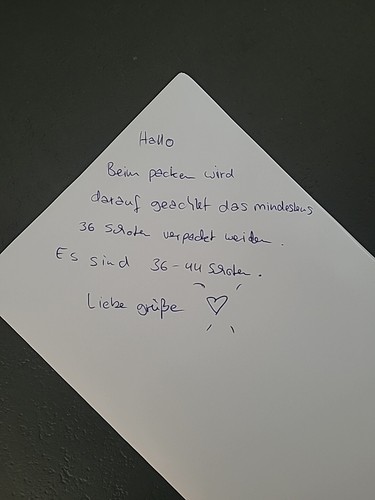 Hallo
Beim packen wird
darauf geachtet das mindestens
36 Schoten verpackt werden.
Es sind 36-44 Schoten.
Liebe grüße